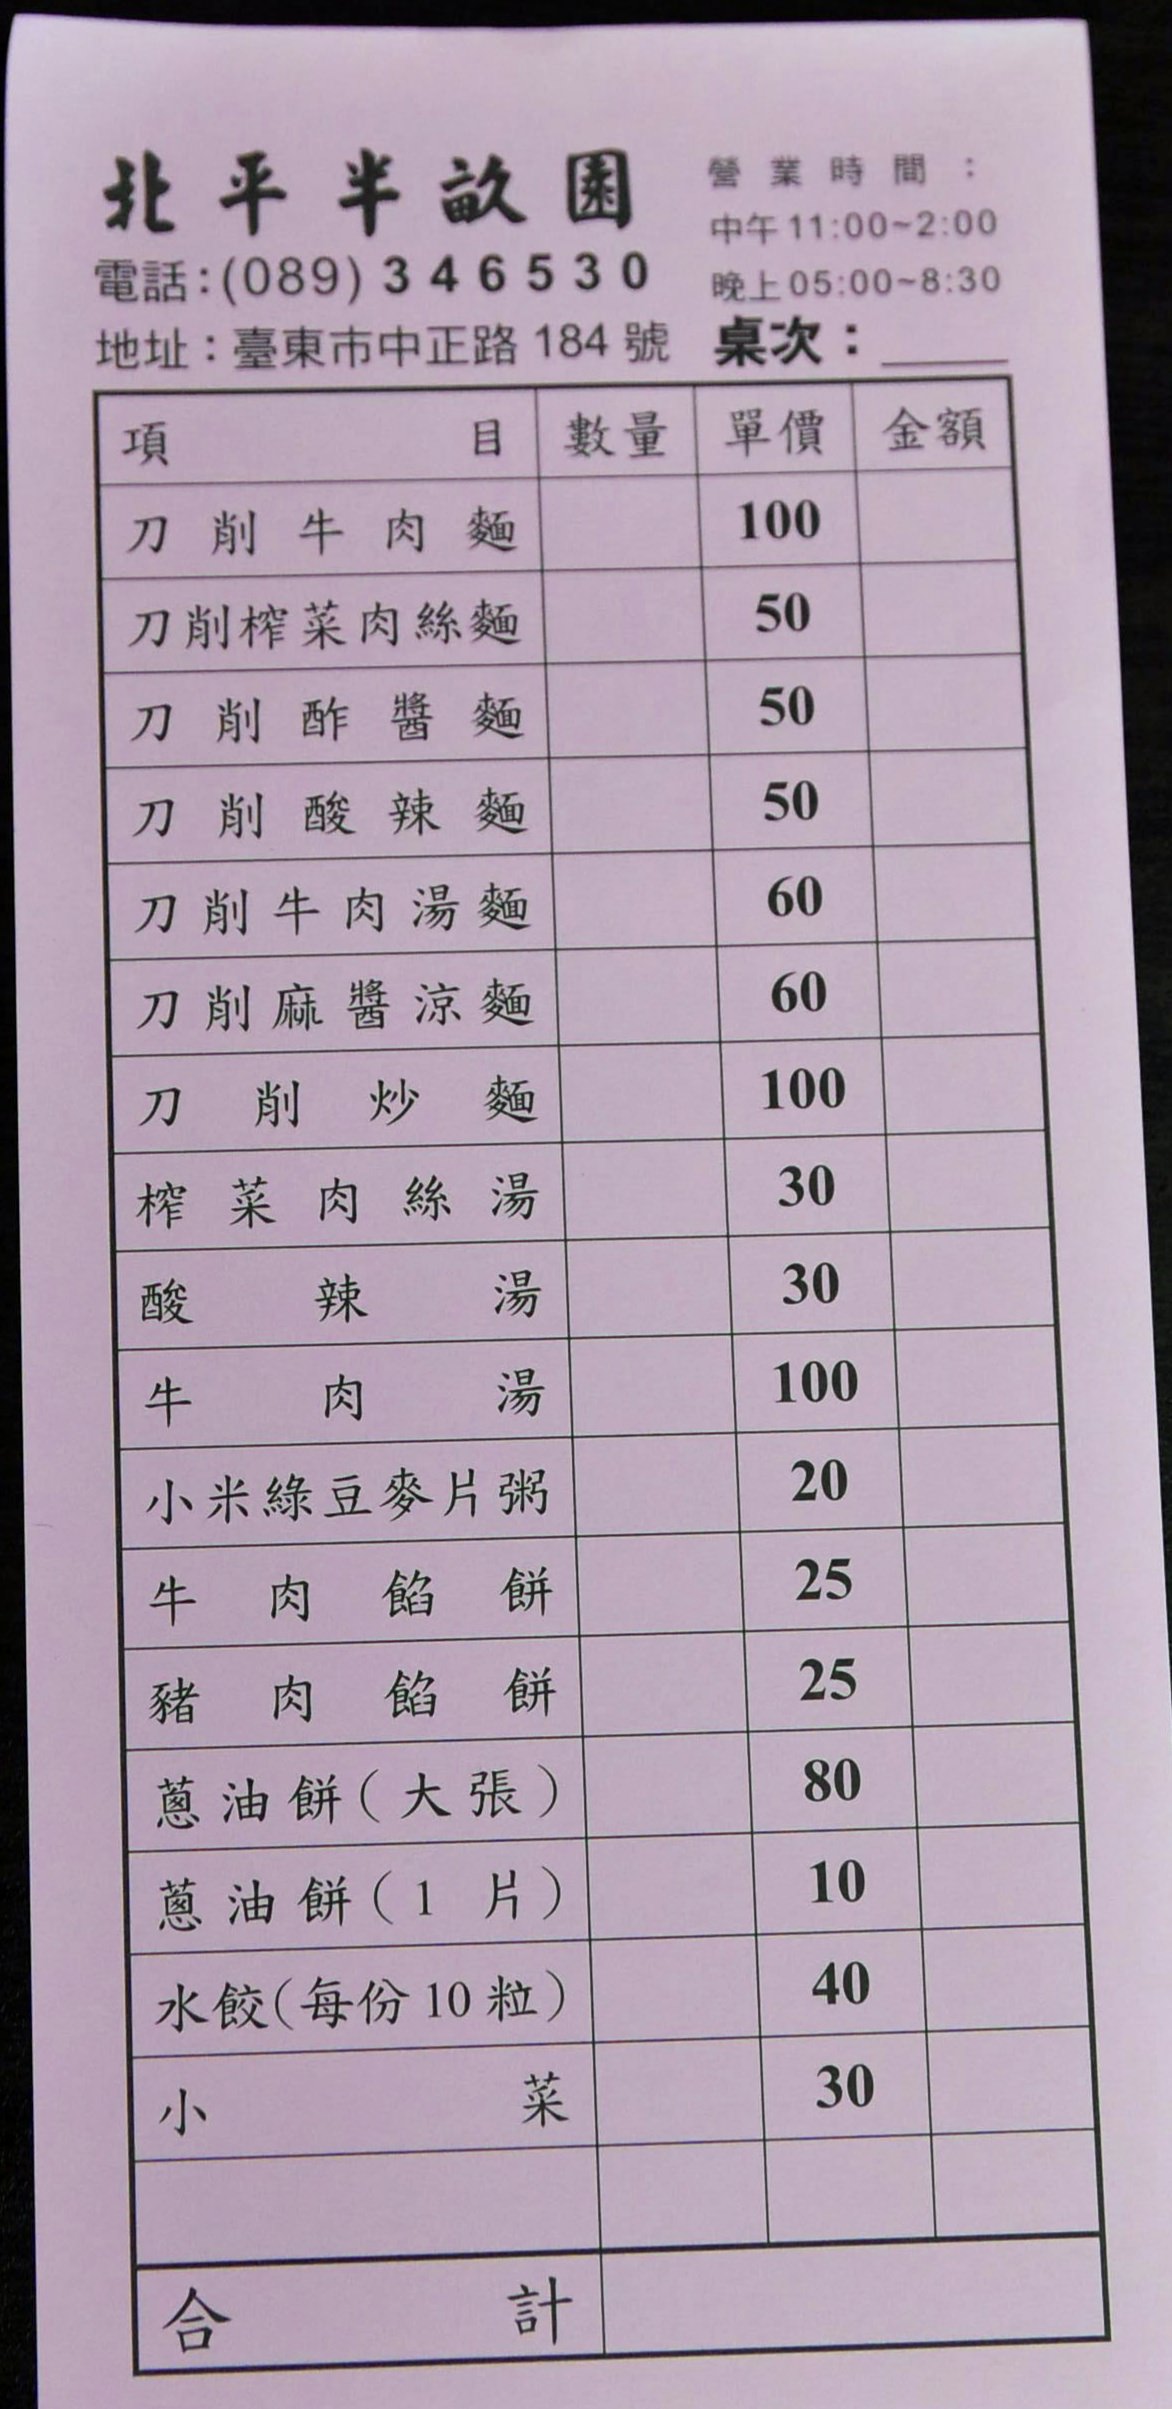 北平半畝園
電話:(089)346530
地址：臺東市中正路184號
營業時間：
中午11:00~2:00
晚上05:00~8:30
桌次：
項目 數量 單價 金額
刀削牛肉麵 100
刀削榨菜肉絲麵 50
刀削酢醬麵 50
刀削酸辣麵 50
刀削牛肉湯麵 60
刀削麻醬涼麵 60
刀削炒麵 100
榨菜肉絲湯 30
酸辣湯 30
牛肉湯 100
小米綠豆麥片粥 20
牛肉餡餅 25
豬肉餡餅 25
蔥油餅(大張) 80
蔥油餅(1片) 10
水餃(每份10粒) 40
小菜 30
合計